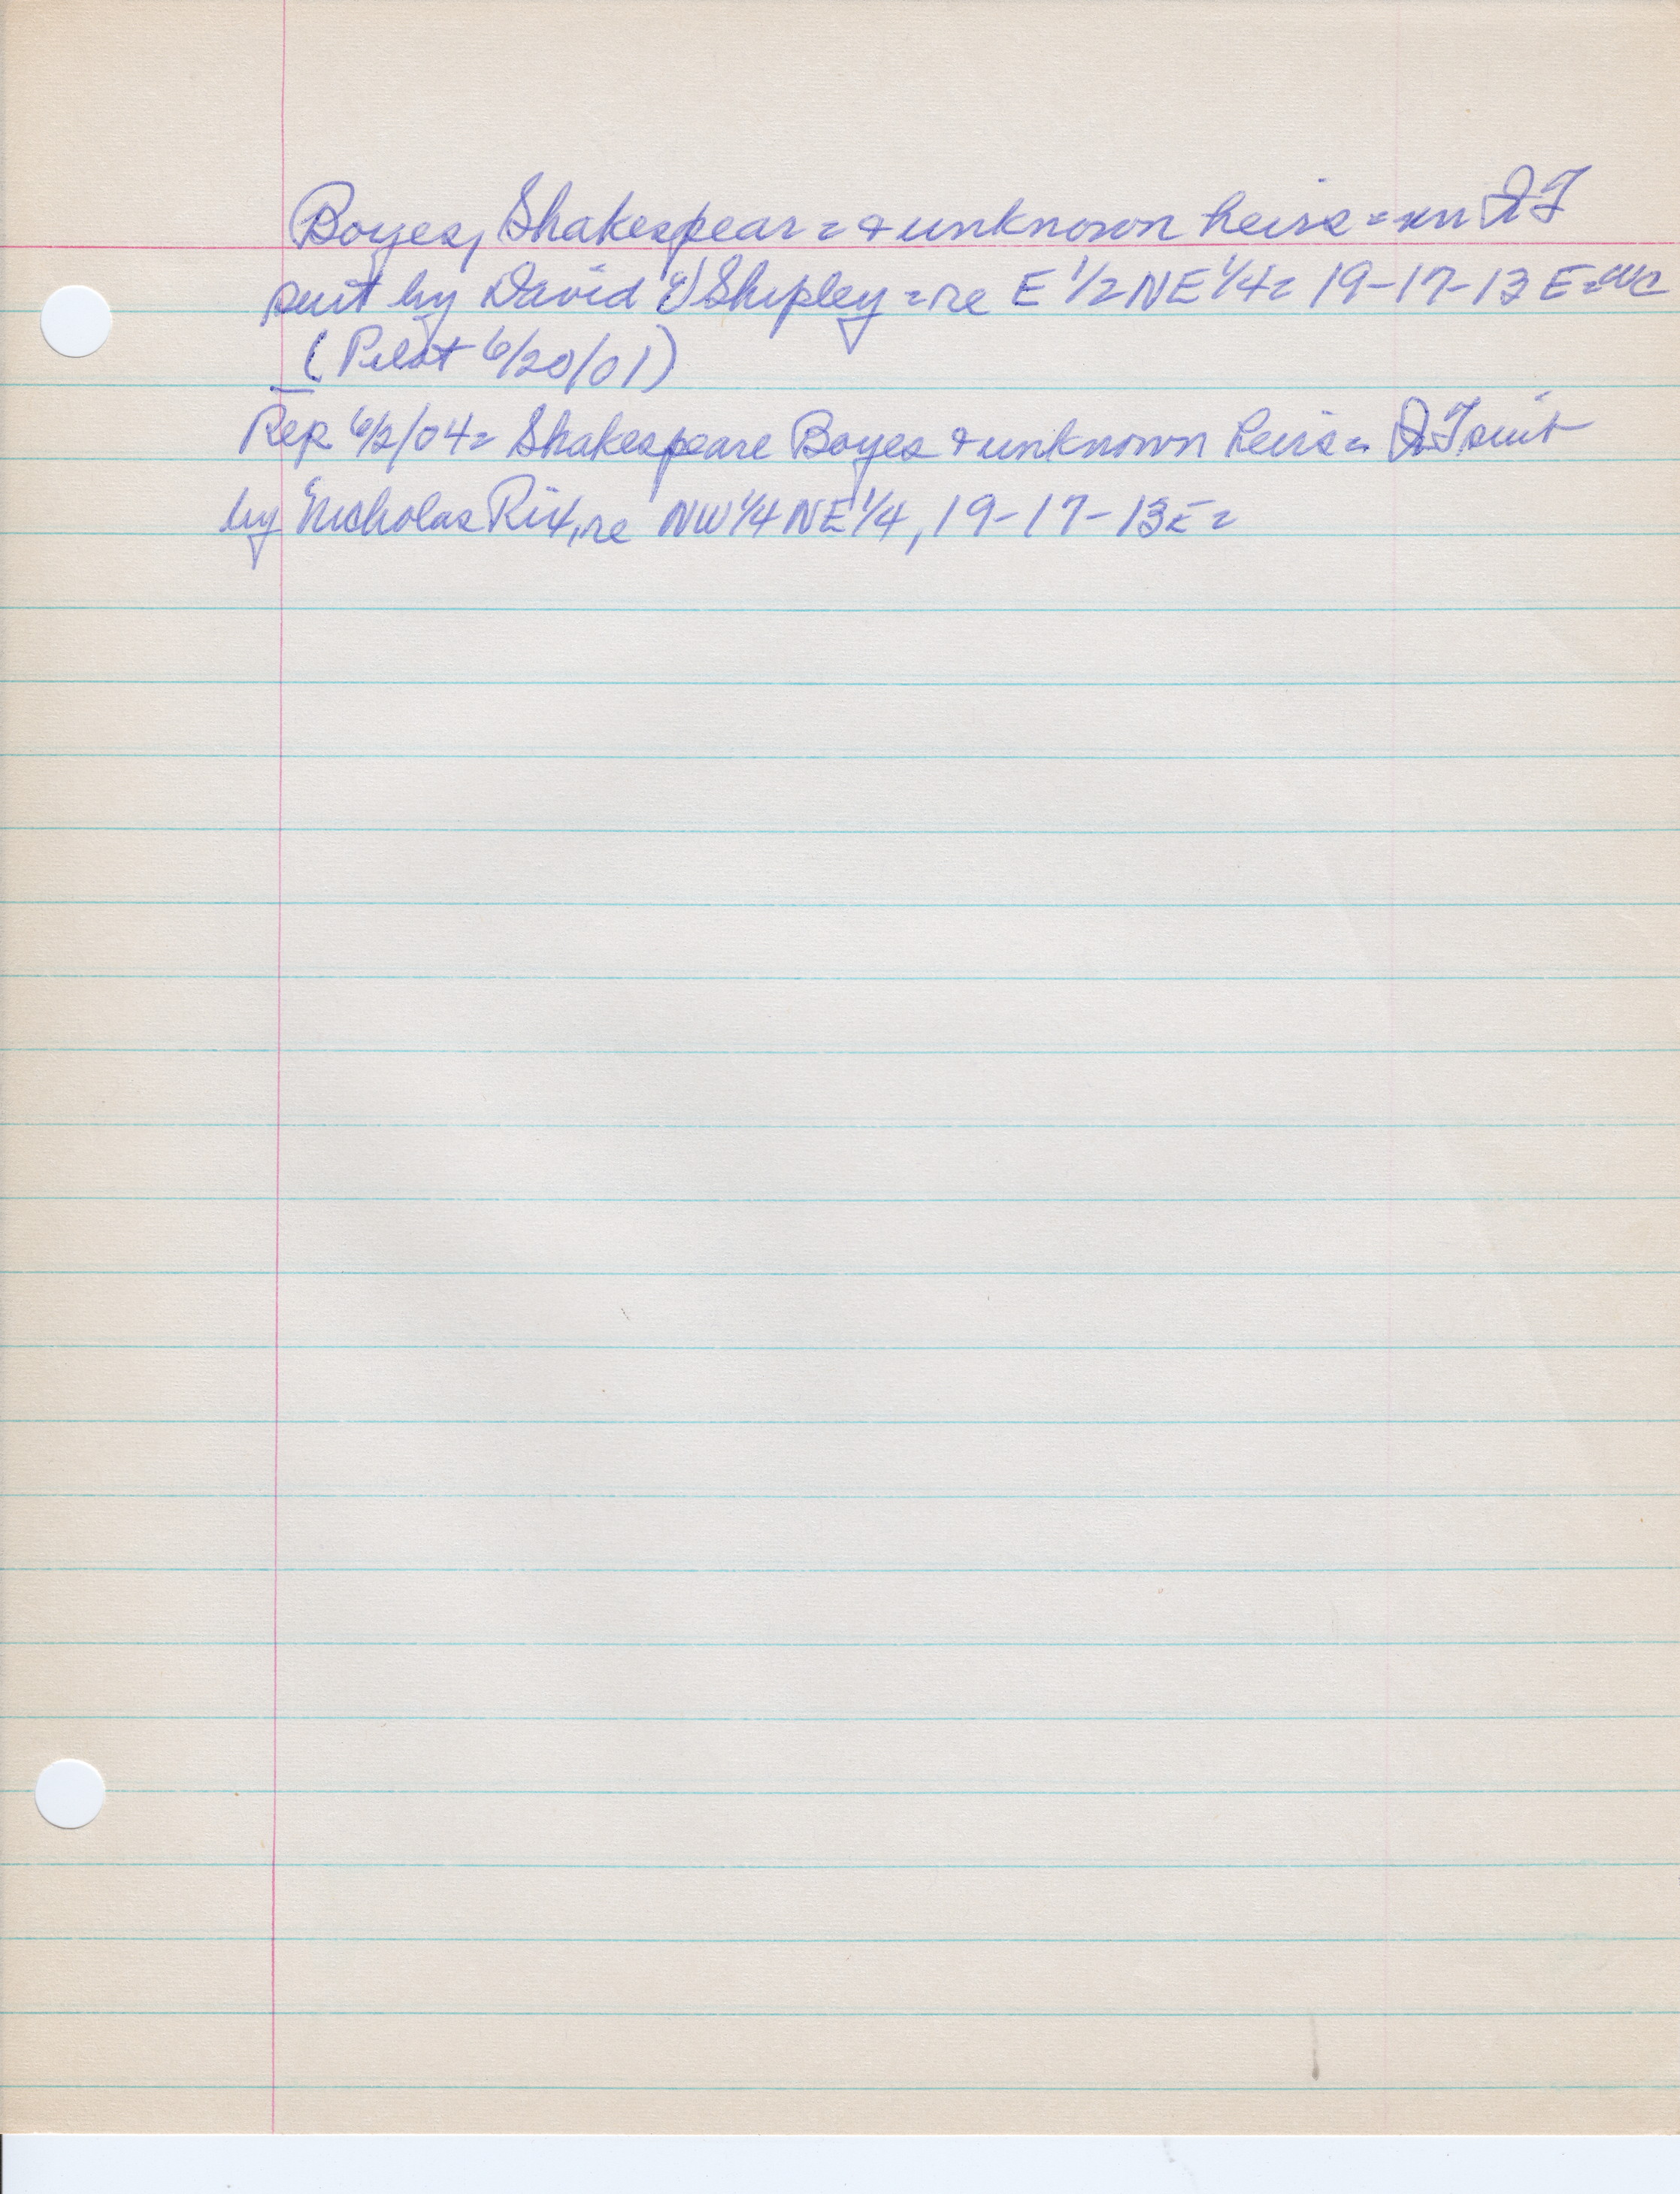 Boyes, Shakespear = & unknown heirs = in QT
suit by David V Shipley = re E 1/2 NE 1/4 = 19-17-13 E = WC
(Pilot 6/20/01)
Rep 6/2/04 = Shakespeare Boyes & unknown heirs = QT suit
by Nicholas Rix, re NW 1/4 NE 1/4, 19-17-13 E =